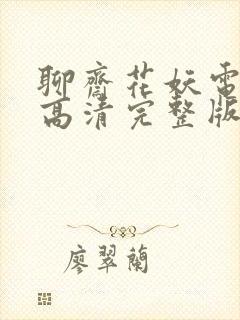 聊齋花妖電
高清完整版
廖翠蘭